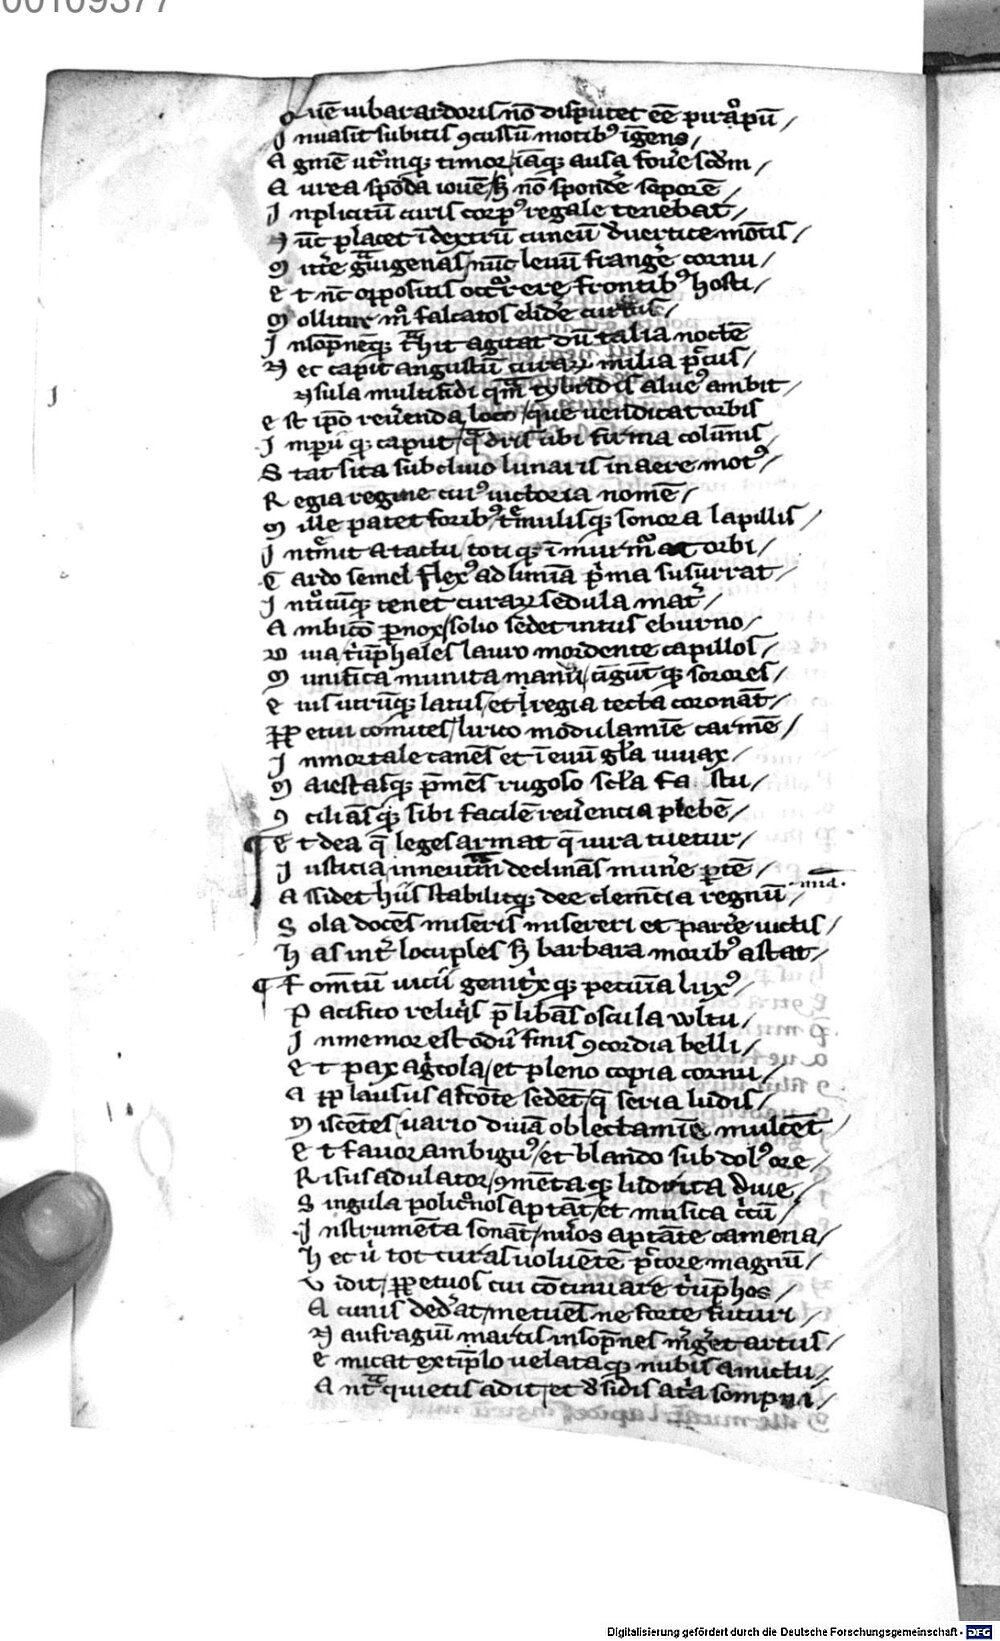 00109377
Quē uibar ardoris nō disputet eē pirāpū /
J nuasit subitis ꝯcussū motibꝰ īgens /
A gmē utͥmqꝫ timor / iāqꝫ ausa fouͤe sodͦm /
A urea spōda iouē / sꝫ nō spondͤe soporē /
J nplicitū curis corpꝰ regale tenebat /
N ūc placet ī dextrū cuneū dͤ uertice mōtis /
M ittͤe gͣuigenas / nūc leuū frangͤe cornu /
E t nc̄ oppositis occurrere frontibꝰ hosti /
M ollitur mͦ falcatos elidͤe currus /
J nsopnēqꝫ tͣhit agitat dū talia noctē
N ec capit angustū curaꝝ milia pͨtus /
J nsula multifidi qͣm tybridis alueꝰ ambit /
E st ipō reuͤenda loco / que uendicat orbis
J mpii qꝫ caput / qͣdris ubi firma colūnis
S tat sita sub cliuo lunaris in aere motꝰ /
R egia regine cuiꝰ uictoria nomē /
M ille patet foribꝰ / tͤmulisqꝫ sonora lapillis /
J ntͦnit a tactu / totiqꝫ ī murmͣat orbi /
C ardo semel flexꝰ ad limīa pͥma susurrat /
J ntͦitūqꝫ tenet curaꝝ sedula matͤ /
A mbicō ꝑnox / solio sedet intus eburno /
N uīa / tͥūphales lauro mordente capillos /
M unifica munita manu / cīgūt qꝫ sorores /
E ius utrūqꝫ latus / et regia tecta coronāt /
P ꝑpetui comites / lirico modulamīe carmē /
J nmortale canēs et ī euū glā uiuax /
M aiestasqꝫ p̄mēs rugoso scl̄a fastu /
C ꝯciliāsqꝫ sibi facilē reuͤencia plebē /
E t dea q̄ leges armat q̄ iura tuetur /
J usticia / inneutͣm declinās munͤe ꝑtē /
A ssidet hijs stabilitqꝫ dee clemēcia regnū /
S ola docēs miseris misereri et parcͤe uictis /
H as intͤ locuples sꝫ barbara moribꝰ astat /
F omītū uicii genitͥxqꝫ pecūīa luxꝰ /
P acifico reliqͥs p̄libās oscula wltu /
J nmemor est odii finis ꝯcordia belli /
E t pax agͥcola / et pleno copia cornu /
A pplausus ascōte sedēt / q̄ seria ludis /
M iscētes / uario diuā oblectamīe mulcēt /
E t fauor ambiguꝰ / et blando sub dolꝰ ore /
R isus adulator / ꝯmētaqꝫ ludicra diue /
S ingula policͦnos aptāt / et musica cͥcū /
J nstrumēta sonāt / nͬos aptāte camena /
H ec ū tot curas uoluētē pͨtore magnū /
V idit / ꝑpetuos cui cōtinuare tͥūphos /
A cunis dedͤat / metuēs ne forte futuri /
N aufragiū martis insopnes mͤgͤet artus /
E micat extīplo uelataqꝫ nubis amictu /
A ntͣ quietis adit / et dͤsidis atͥa sompni /
Digitalisierung gefördert durch die Deutsche Forschungsgemeinschaft - DFG